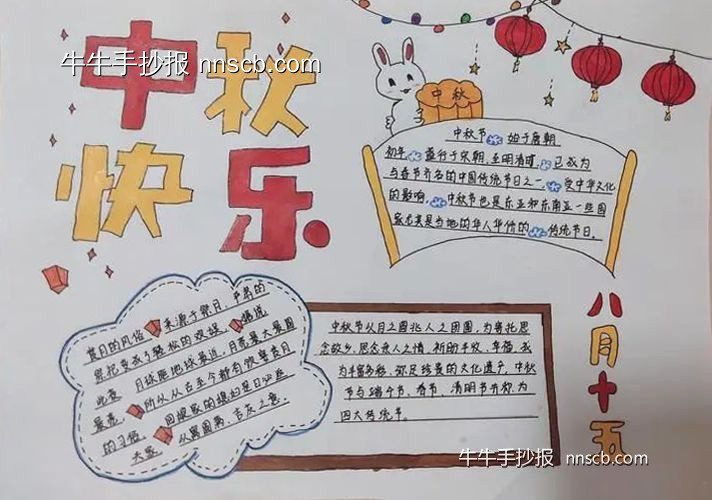 中秋
快乐
牛牛手抄报 nnscb.com
中秋
中秋节 始于唐朝
初年 盛行于宋朝,至明清时 已成为
与春节齐名的中国传统节日之一 受中华文化
的影响, 中秋节也是东亚和东南亚一些国
家尤其是当地的华人华侨的 传统节日。
八月十五
赏月的风俗 来源于祭月,严肃的
祭托变成了轻松的欢娱。 据说
此夜 月球距地球最近,月亮最大最圆
最亮, 所以从古至今都有饮宴赏月
的习俗, 回娘家的媳妇是日必返
夫家 从寓圆满、吉庆之意。
中秋节以月之圆兆人之团圆,为寄托思
念故乡,思念亲人之情,祈盼丰收、幸福,成
为丰富多彩、弥足珍贵的文化遗产,中秋
节与端午节、春节、清明节并称为
四大传统节。
牛牛手抄报 nnscb.com